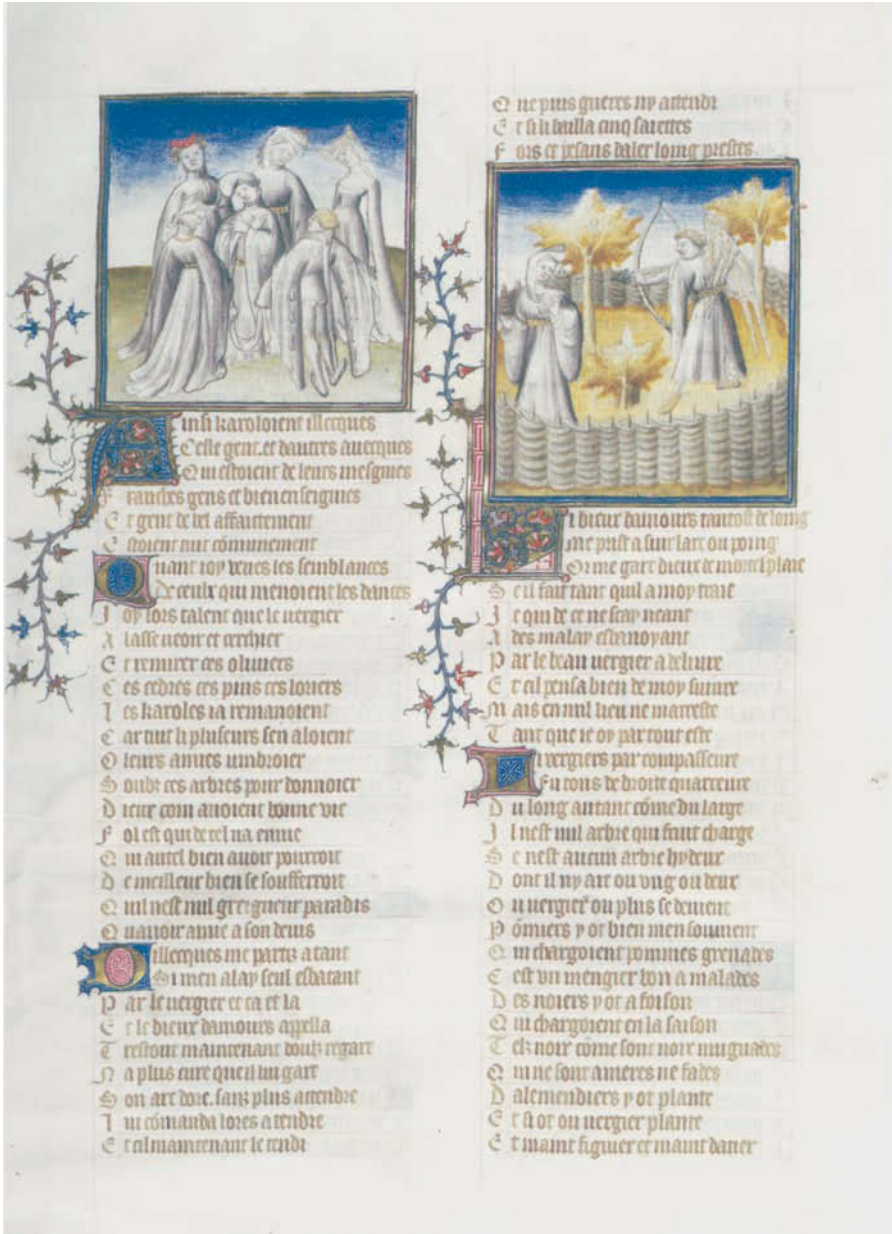 Ainsi karoloient illecques
Ceste gent. et dautres auecques
Qui estoient de leurs mesgnies
Franches gens et bien enseignies
Et gent de bel affaitement
Estoient tuit cōmunement
Quant ioy veues les semblances
De ceulx qui menoient les dances
Joy lors talent que le vergier
Alasse veoir et cerchier
Et remirer ces oliuiers
Ces cedres ces pins ces loriers
Les karoles ia remanoient
Car tuit li plusieurs sen aloient
O leurs amies umbroier
Soubz ces arbres pour donnoier
Dieux com auoient bonne vie
Fol est qui de tel na enuie
Qui autel bien auoir pourroit
De meilleur bien se soufferroit
Quil nest nul greigneur paradis
Quauoir amie a son deuis
Dillecques me partiz a tant
Si men alay seul esbatant
Par le vergier et ca et la
Et le dieux damours appella
Trestout maintenant doulz regart
Na plus cure que il lui gart
Son arc dore. sans plus attendre
Lui cōmanda lores a tendre
Et cil maintenant le tendi
Que puis gueres ny attendi
Et si li bailla cinq saiettes
Fors et pesans daler loing prestes.
Li dieux damours tantost de loing
me prist a suir larc ou poing
Or me gart dieux de mortel plaie
Se il fait tant qui a moy traie
Je qui de ce ne scay neant
Ades malay esbanoyant
Par le beau vergier a deliure
Et cil pensa bien de moy suiure
Mais en nul lieu ne marreste
Tant que ie oy par tout este
Li vergiers par compasseure
Fu tous de droite quarreure
Du long autant cōme du large
Il nest nul arbre qui fruit charge
Se nest aucun arbre hydeux
Dont il ny ait ou vng ou deux
Ou vergier ou plus se deuient
Pōmiers y ot bien men souuient
Qui chargoient pommes grenades
Cest vn mengier bon a malades
Des noiers y ot a foison
Qui chargoient en la saison
Telz noix cōme sont noix muguades
Qui ne sont ameres ne fades
Dalemendiers y ot plante
Et si ot ou vergier plante
Et maint figuier et maint datier